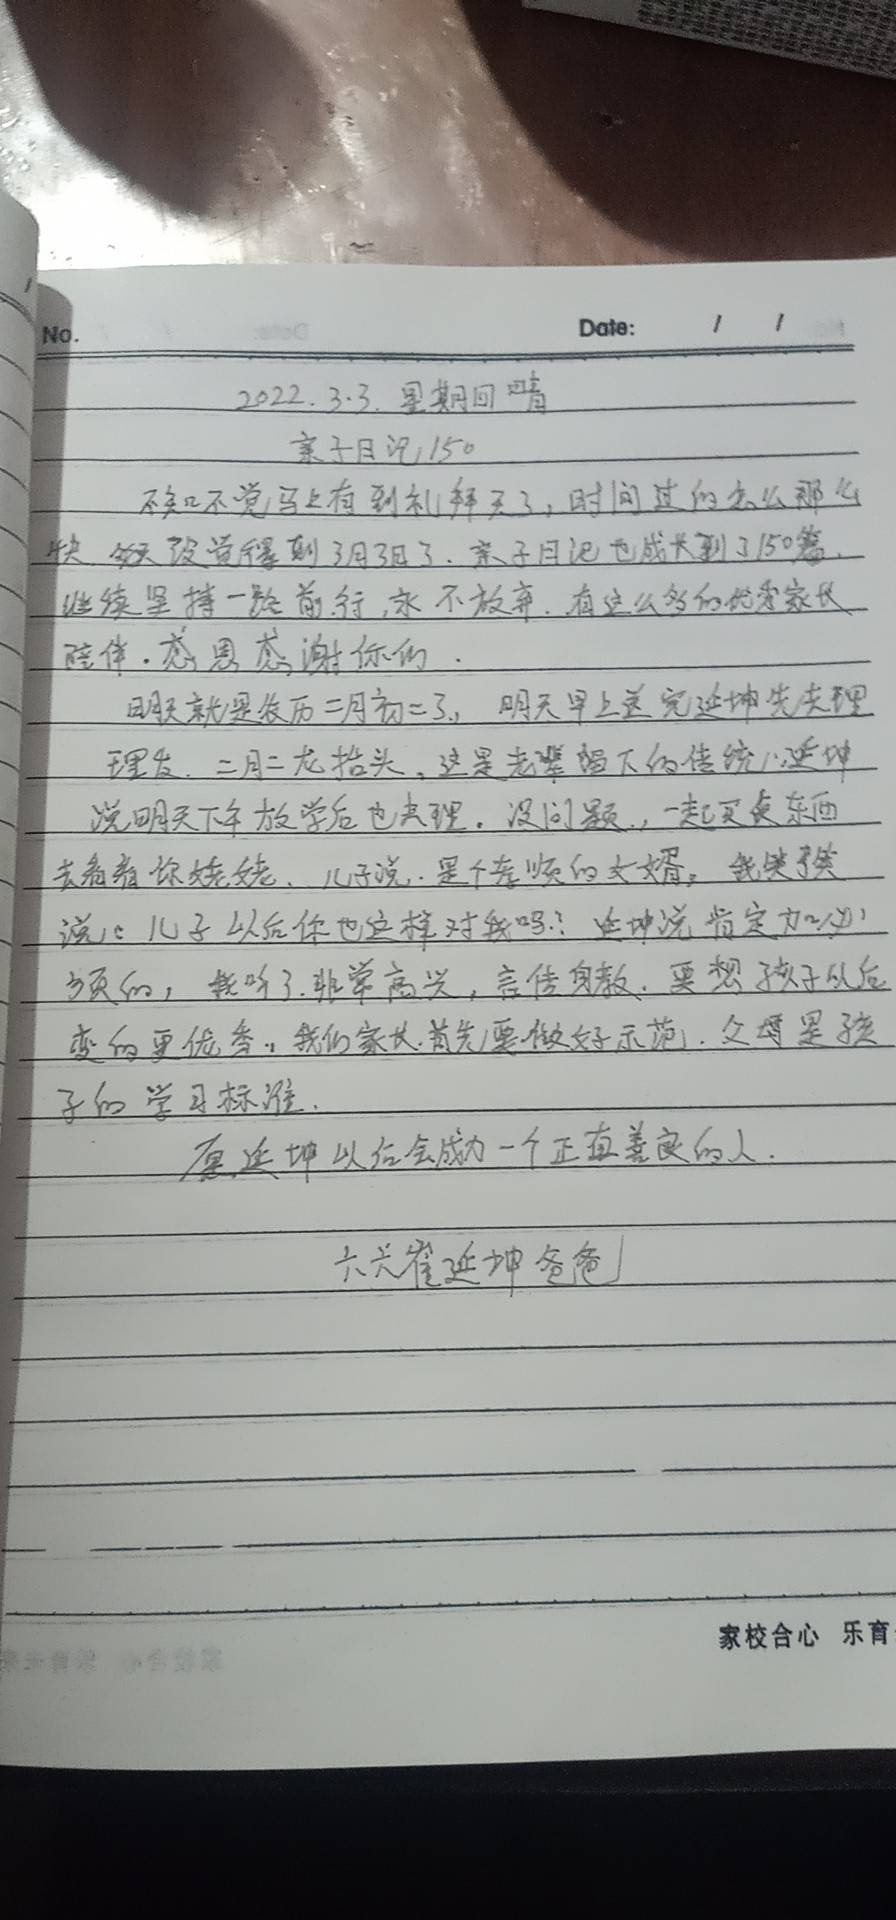 No. Date: / /
2022.3.3. 星期四 晴
亲子日记150
不知不觉马上有到礼拜天了，时间过的怎么那么
快.今天没觉得到3月3日了.亲子日记也成长到了150篇.
继续坚持一路前行,永不放弃.有这么多的优秀家长
陪伴.感恩感谢你们.
明天就是农历二月初二了, 明天早上送完延坤先去理
理发.二月二龙抬头,这是老辈留下的传统,延坤
说明天下午放学后也去理.没问题.,一起买点东西
去看看你姥姥、儿子说.是个孝顺的女婿。我笑了笑
说:儿子以后你也这样对我吗?延坤说肯定加必
须的，我听了.非常高兴，言传身教.要想孩子以后
变的更优秀,我们家长.首先要做好示范.父母是孩
子的学习标准.
愿延坤以后会成为一个正直善良的人.
六.六崔延坤爸爸
家校合心 乐育